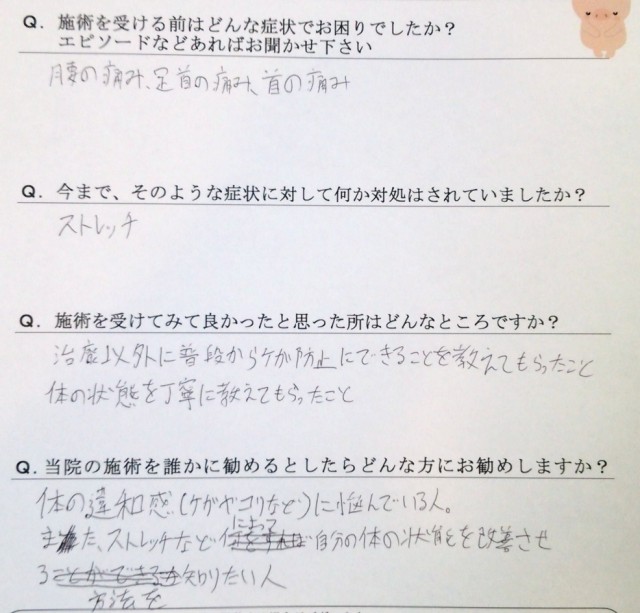 Q. 施術を受ける前はどんな症状でお困りでしたか?
エピソードなどあればお聞かせ下さい
腰の痛み、足首の痛み、首の痛み
Q. 今まで、そのような症状に対して何か対処はされていましたか?
ストレッチ
Q. 施術を受けてみて良かったと思った所はどんなところですか?
治療以外に普段からケガ防止にできることを教えてもらったこと
体の状態を丁寧に教えてもらったこと
Q. 当院の施術を誰かに勧めるとしたらどんな方にお勧めしますか?
体の違和感(ケガやコリなど)に悩んでいる人。
また、ストレッチなどによって自分の体の状態を改善させ
る方法を知りたい人